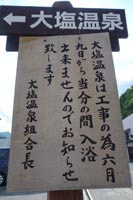 ←大塩温泉
大塩温泉は工事の為六月
九日から当分の間入浴
出来ませんのでお知らせ
致します
大塩温泉組合長